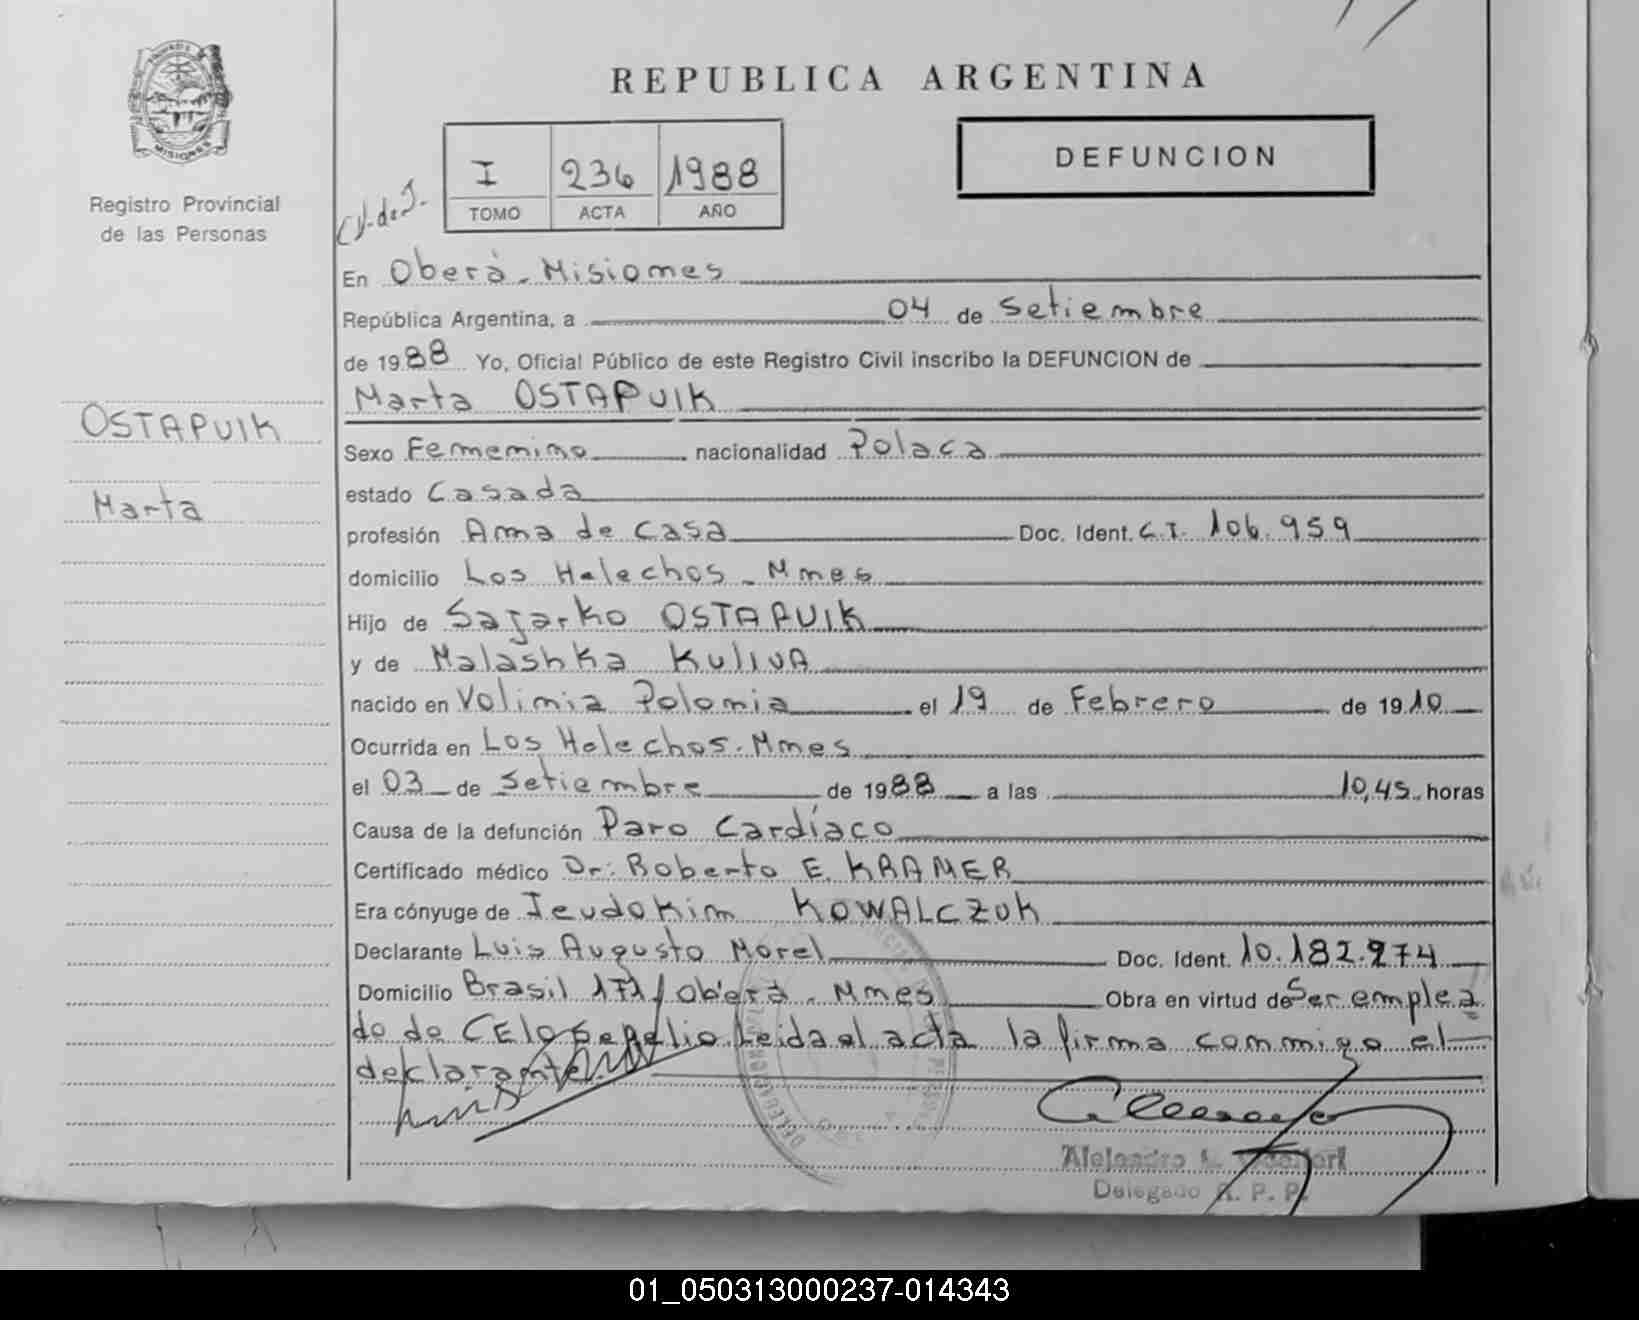 MISIONES
Registro Provincial
de las Personas
REPUBLICA ARGENTINA
DEFUNCION
I 236 1988
TOMO ACTA AÑO
En Oberá - Misiones
República Argentina, a 04 de Setiembre
de 1988 Yo, Oficial Público de este Registro Civil inscribo la DEFUNCION de
Marta OSTAPUIK
OSTAPUIK
Marta
Sexo Femenino nacionalidad Polaca
estado Casada
profesión Ama de casa Doc. Ident. C.I. 106.959
domicilio Los Helechos - Mnes
Hijo de Sajarko OSTAPUIK
y de Malashka KULIVA
nacido en Volinia Polonia el 19 de Febrero de 1910
Ocurrida en Los Helechos - Mnes
el 03 de Setiembre de 1988 a las 10,45 horas
Causa de la defunción Paro Cardíaco
Certificado médico Dr: Roberto E. KRAMER
Era cónyuge de Ieudokim KOWALCZUK
Declarante Luis Augusto Morel Doc. Ident. 10.182.974
Domicilio Brasil 171/ Oberá - Mnes Obra en virtud de Ser emplea
do de CELO Sepelio Leida el acta la firma conmigo el
declarante
Alejandro L.
Delegado R. P. P.
01_050313000237-014343